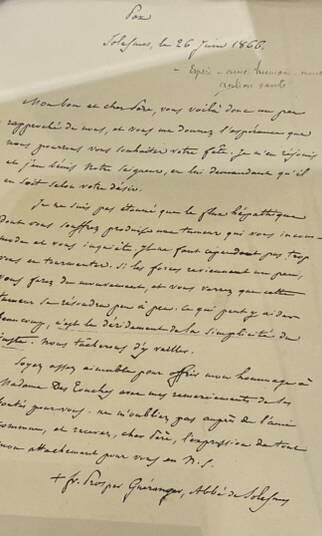 Pax
Solesmes, le 26 Juin 1866.
Mon bon et cher Père, vous voilà donc un peu
rapproché de nous, et vous me donnez l'espérance que
nous pourrons vous souhaiter votre fête. Je m'en réjouis
et j'en bénis Notre Seigneur, en lui demandant qu'il
en soit selon votre désir.
Je ne suis pas étonné que le flux hépathique
dont vous souffrez produise une tumeur qui vous incom-
mode et vous inquiète. Il ne faut cependant pas trop
vous en tourmenter. Si les forces reviennent un peu,
vous ferez du mouvement, et vous verrez que cette
tumeur se résoudra peu à peu. Ce qui peut y aider
beaucoup, c'est le de la simplicité du
juste. Nous tâcherons d'y veiller.
Soyez assez aimable pour offrir mon hommage à
Madame Des Touches avec mes remerciements de ses
bontés pour vous. ne m'oubliez pas auprès de l'ami
commun, et recevez, cher Père, l'expression de tout
mon attachement pour vous en N. S.
+ fr. Prosper Guéranger, Abbé de Solesmes